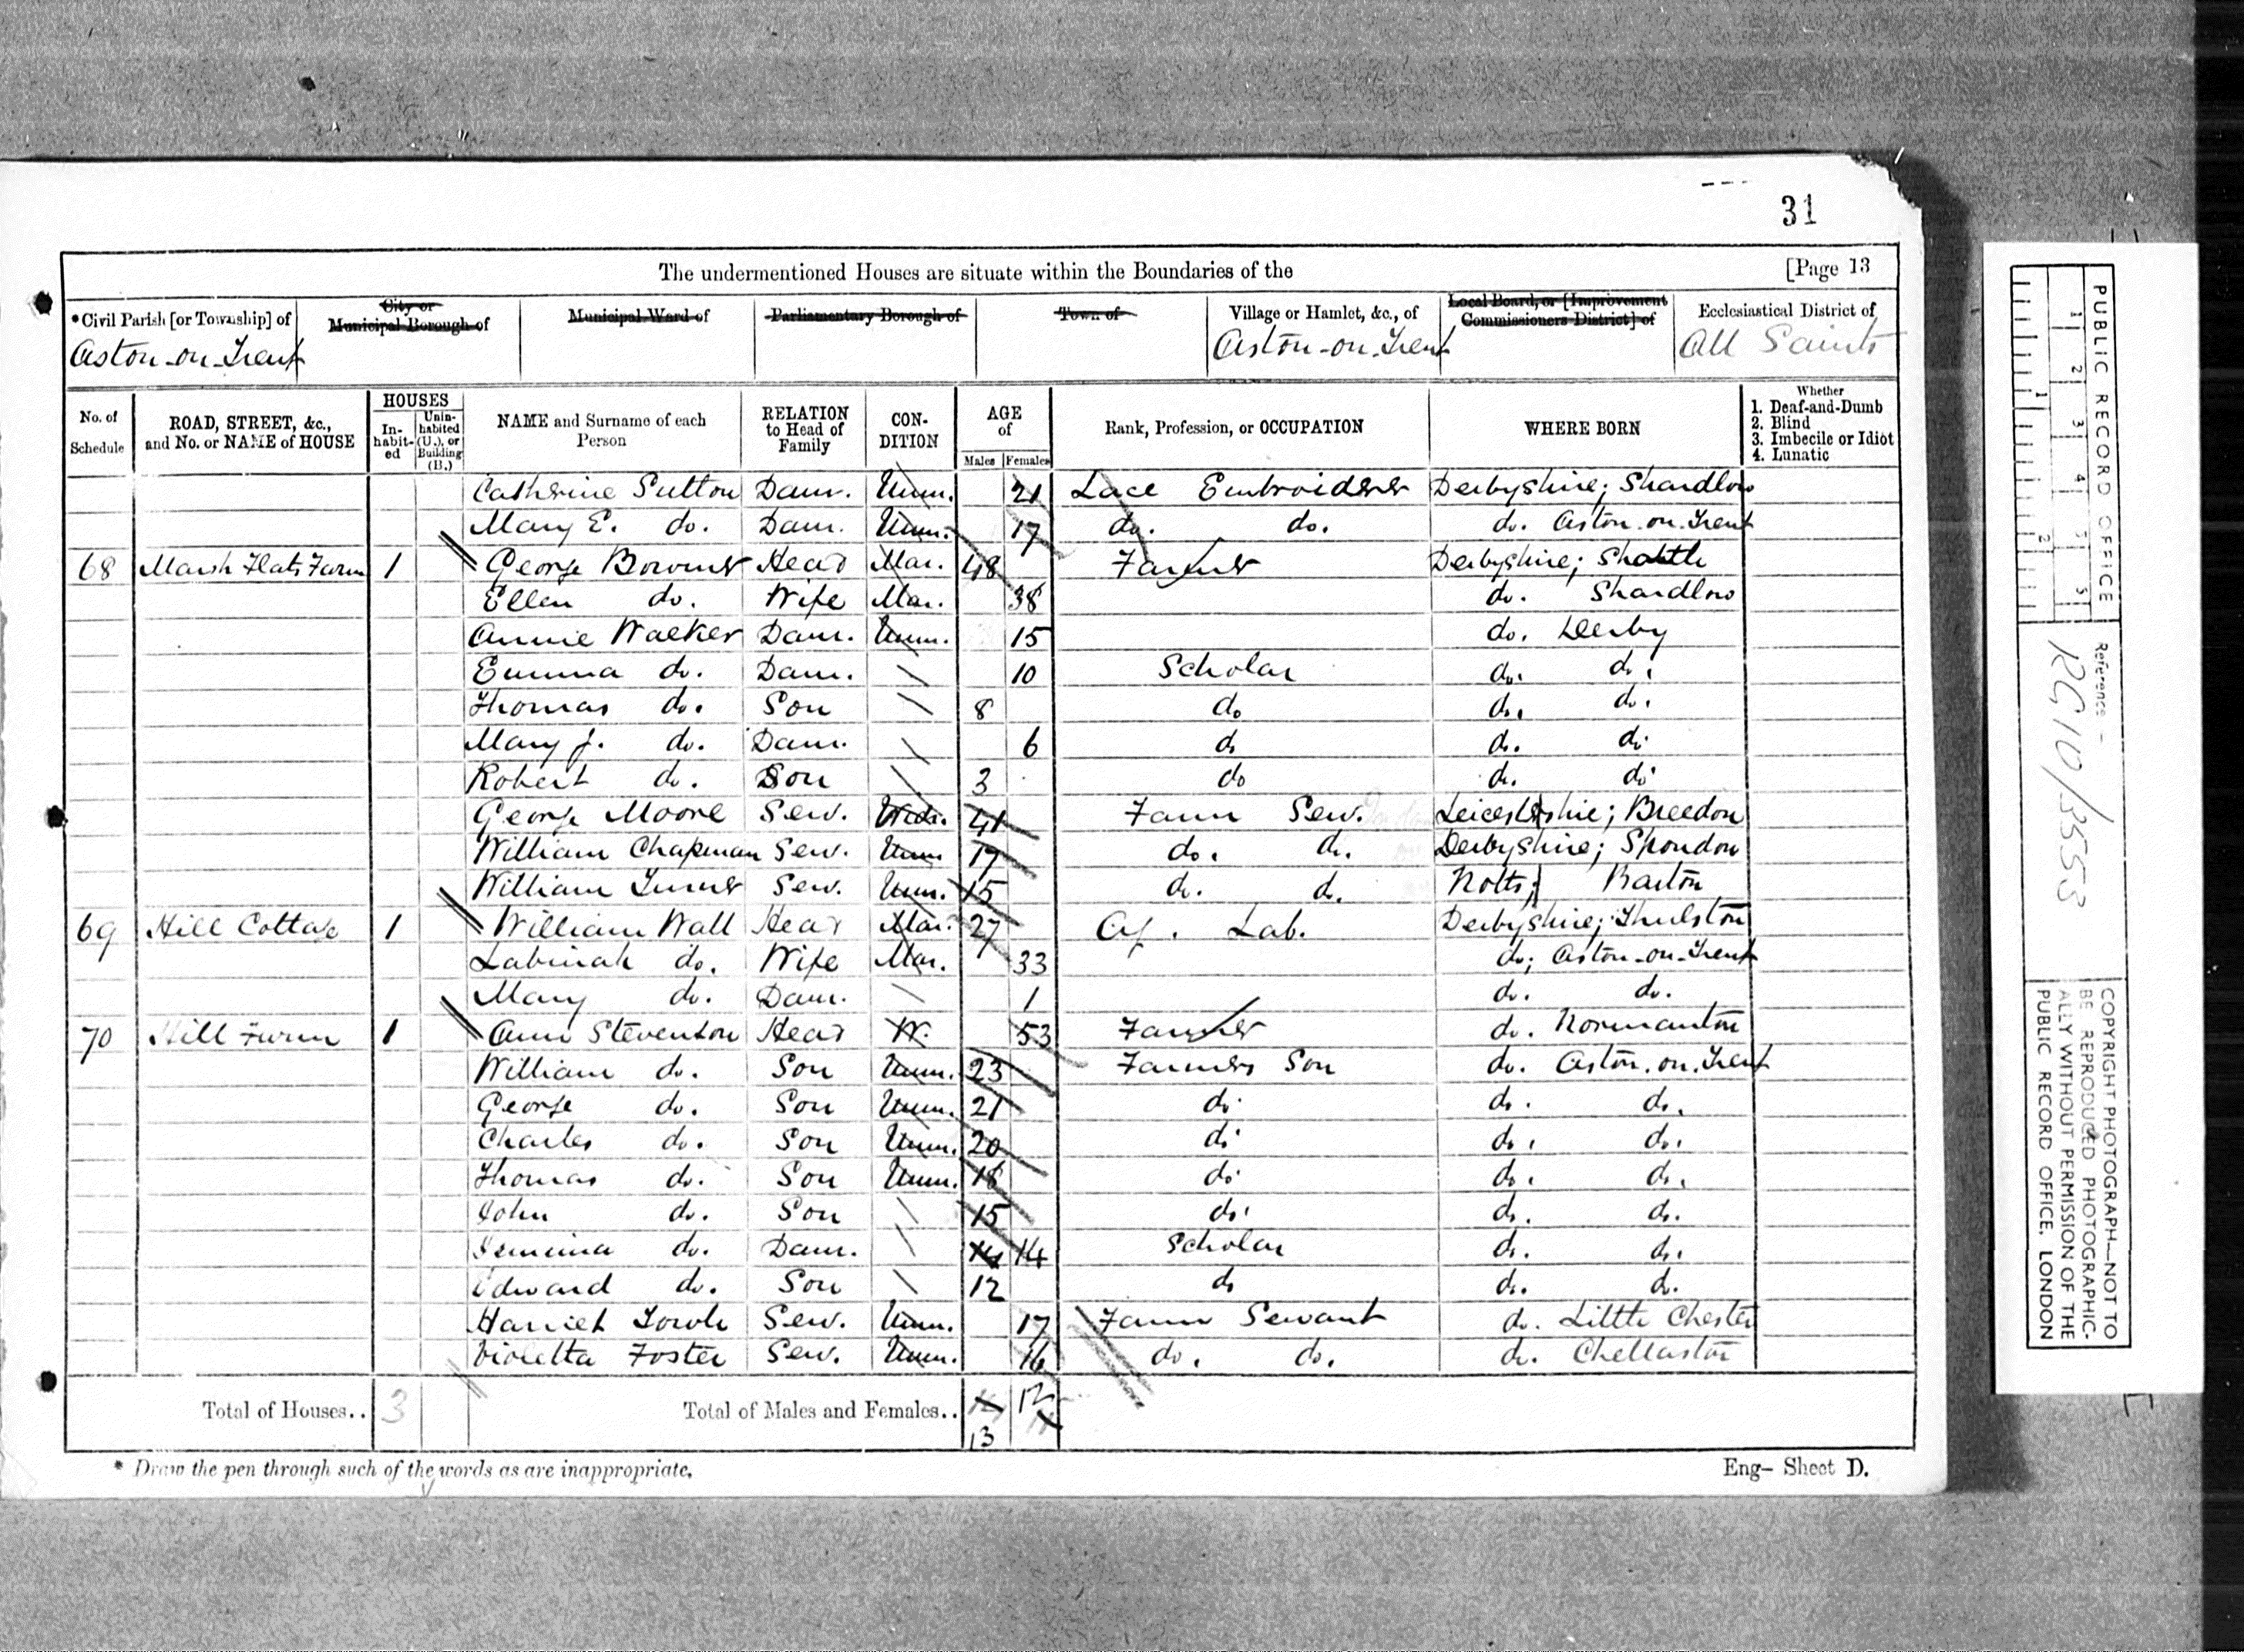 31
The undermentioned Houses are situate within the Boundaries of the [Page 13
*Civil Parish [or Township] of City or Municipal Borough of Municipal Ward of Parliamentary Borough of Town of Village or Hamlet, &c., of Local Board, or [Improvement Commissioners District] of Ecclesiastical District of
Aston-on-Trent Aston-on-Trent All Saints
No. of Schedule ROAD, STREET, &c., and No. or NAME of HOUSE HOUSES In-habit-ed Unin-habited (U.), or Building (B.) NAME and Surname of each Person RELATION to Head of Family CON-DITION AGE of Males Females Rank, Profession, or OCCUPATION WHERE BORN Whether 1. Deaf-and-Dumb 2. Blind 3. Imbecile or Idiot 4. Lunatic
Catherine Sutton Daur. Unm. 21 Lace Embroiderer Derbyshire; Shardlow
Mary E. do. Daur. Unm. 17 do. do. do. Aston-on-Trent
68 Marsh Flats Farm 1 George Bowmer Head Mar. 48 Farmer Derbyshire; Shottle
Ellen do. Wife Mar. 38 do. Shardlow
Annie Walker Daur. Unm. 15 do. Derby
Emma do. Daur. 10 Scholar do. do.
Thomas do. Son 8 do do. do.
Mary J. do. Daur. 6 do do. do.
Robert do. Son 3 do do. do.
George Moore Serv. Widr. 41 Farm Serv. Leicestershire; Breedon
William Chapman Serv. Unm 17 do. do. Derbyshire; Spondon
William Turner Serv. Unm. 15 do. do. Notts; Barton
69 Hill Cottage 1 William Wall Head Mar. 27 Ag. Lab. Derbyshire; Thulston
Labinah do. Wife Mar. 33 do; Aston-on-Trent
Mary do. Daur. 1 do. do.
70 Hill Farm 1 Ann Stevenson Head W. 53 Farmer do. Normanton
William do. Son Unm. 23 Farmers Son do. Aston-on-Trent
George do. Son Unm. 21 do. do. do.
Charles do. Son Unm. 20 do. do. do.
Thomas do. Son Unm. 18 do. do. do.
John do. Son 15 do. do. do.
Jemima do. Daur. 14 14 Scholar do. do.
Edward do. Son 12 do do. do.
Harriet Towle Serv. Unm. 17 Farm Servant do. Little Chester
Violetta Foster Serv. Unm. 16 do. do. do. Chellaston
Total of Houses.. 3 Total of Males and Females.. 12
13
* Draw the pen through such of the words as are inappropriate. Eng- Sheet D.
PUBLIC RECORD OFFICE
1 2 3 4 5
1 2
Reference:-
RG 10/3553
COPYRIGHT PHOTOGRAPH—NOT TO
BE REPRODUCED PHOTOGRAPHIC-
ALLY WITHOUT PERMISSION OF THE
PUBLIC RECORD OFFICE, LONDON